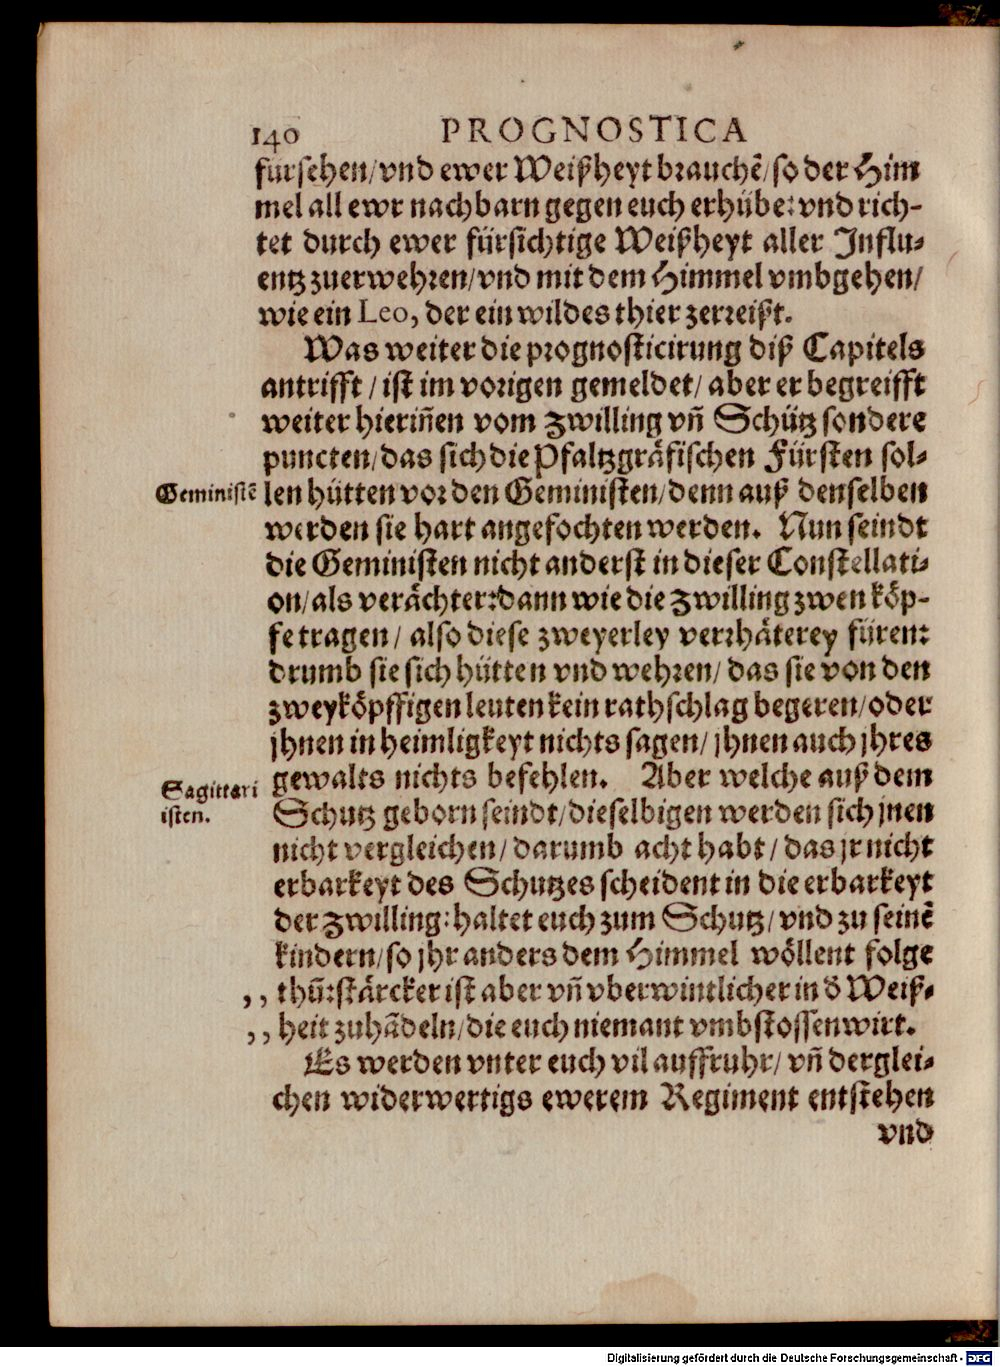 140 PROGNOSTICA
fürsehen/vnd ewer Weißheyt brauchē/so der Him
mel all ewr nachbarn gegen euch erhübe: vnd rich-
tet durch ewer fürsichtige Weißheyt aller Influ-
entz zuerwehren/vnd mit dem Himmel vmbgehen/
wie ein Leo, der ein wildes thier zerreißt.
Was weiter die prognosticirung diß Capitels
antrifft/ist im vorigen gemeldet/aber er begreifft
weiter hieriñen vom Zwilling vñ Schütz sondere
puncten/das sich die Pfaltzgräfischen Fürsten sol-
Geministē
len hütten vor den Geministen/denn auß denselben
werden sie hart angefochten werden. Nun seindt
die Geministen nicht anderst in dieser Constellati-
on/als verächter:dann wie die Zwilling zwen köp-
fe tragen/also diese zweyerley verrhäterey füren:
drumb sie sich hütten vnd wehren/das sie von den
zweyköpffigen leuten kein rathschlag begeren/oder
jhnen in heimligkeyt nichts sagen/jhnen auch jhres
gewalts nichts befehlen. Aber welche auß dem
Sagittari
isten.
Schutz geborn seindt/dieselbigen werden sich jnen
nicht vergleichen/darumb acht habt/das jr nicht
erbarkeyt des Schutzes scheident in die erbarkeyt
der Zwilling:haltet euch zum Schutz/vnd zu seinē
kindern/so jhr anders dem Himmel wöllent folge
,, thůn:stärcker ist aber vñ vberwintlicher in d̄ Weiß-
,, heit zuhādeln/die euch niemant vmbstossen wirt.
Es werden vnter euch vil auffruhr/vñ derglei-
chen widerwertigs ewerem Regiment entstehen
vnd
Digitalisierung gefördert durch die Deutsche Forschungsgemeinschaft - DFG